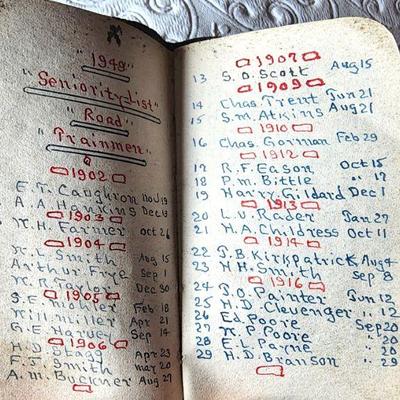 "1948"
"Seniority List"
"Road"
"Trainmen"
1902
E.T. Caughron Nov 19
A.A. Hankins Dec 13
1903
W.H. Farmer Oct 26
1904
W.L. Smith Aug 15
Arthur Frye Sep 1
W.R. Taylor Dec 30
1905
S.E. Mohler Feb 18
Will Miller Apr 21
G.E. Harvey Sep 14
1906
H.D. Stagg Apr 23
F.T. Smith Mar 20
A.M. Buckner Aug 27
1907
13 S.O. Scott Aug 15
1909
14 Chas. Trent Jun 21
15 S.M. Atkins Aug 21
1910
16 Chas. Gorman Feb 29
1912
17 R.F. Eason Oct 15
18 P.M. Bittle " 17
19 Harry Gildard Dec 1
1913
20 L.V. Rader Jan 27
21 H.A. Childress Oct 11
1914
22 J.B. Kirkpatrick Aug 4
23 H.H. Smith Sep 8
1916
24 J.O. Painter Jun 12
25 H.D. Clevenger " 12
26 Ed Poore Sep 20
27 W.P. Poore " 20
28 E.L. Payne " 20
29 H.D. Branson " 29